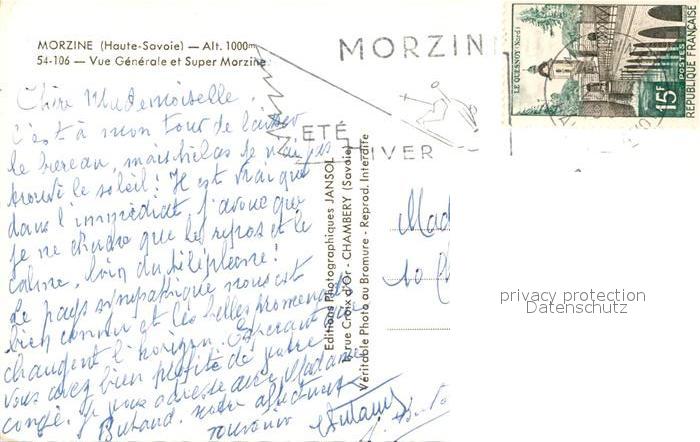 MORZINE (Haute-Savoie) — Alt. 1000m
54-106 — Vue Générale et Super Morzine
MORZIN
ÉTÉ
IVER
LE QUESNOY (Nord)
POSTES
15F
REPUBLIQUE FRANÇAISE
Chère Mademoiselle,
c'est à mon tour de laisser
le bureau, mais hélas je n'ai pas
trouvé le soleil! Il est vrai que
dans l'immédiat j'avoue que
je ne cherche que le repos et le
calme, loin du téléphone!
Le pays sympathique nous est
bien connu et les belles promenades
changent l'horizon. Espérant que
vous avez bien profité de votre
congé. Je vous adresse avec Madame
Butaud, notre affectueux
souvenir
Editions Photographiques JANSOL
rue Croix d'Or - CHAMBERY (Savoie)
Véritable Photo au Bromure - Reprod. Interdite
Mad
10
privacy protection
Datenschutz